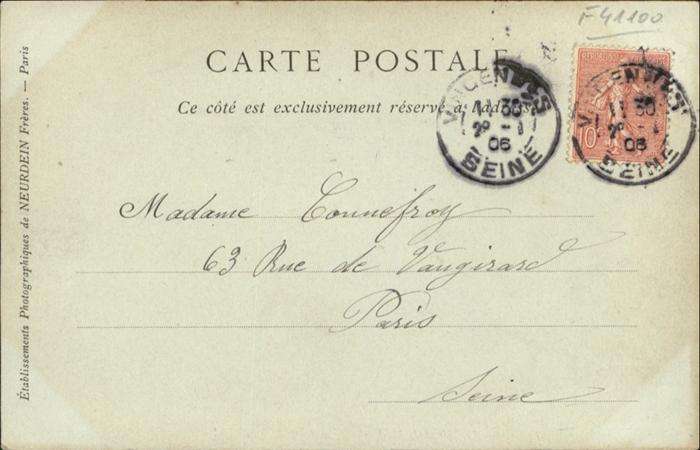 F41100
CARTE POSTALE
Ce côté est exclusivement réservé à l'adresse
VINCENNES
11 30
06
SEINE
10
VINCENNES
11 30
06
SEINE
Madame Connefroy
63 Rue de Vaugirard
Paris
Seine
Établissements Photographiques de NEURDEIN Frères. — Paris